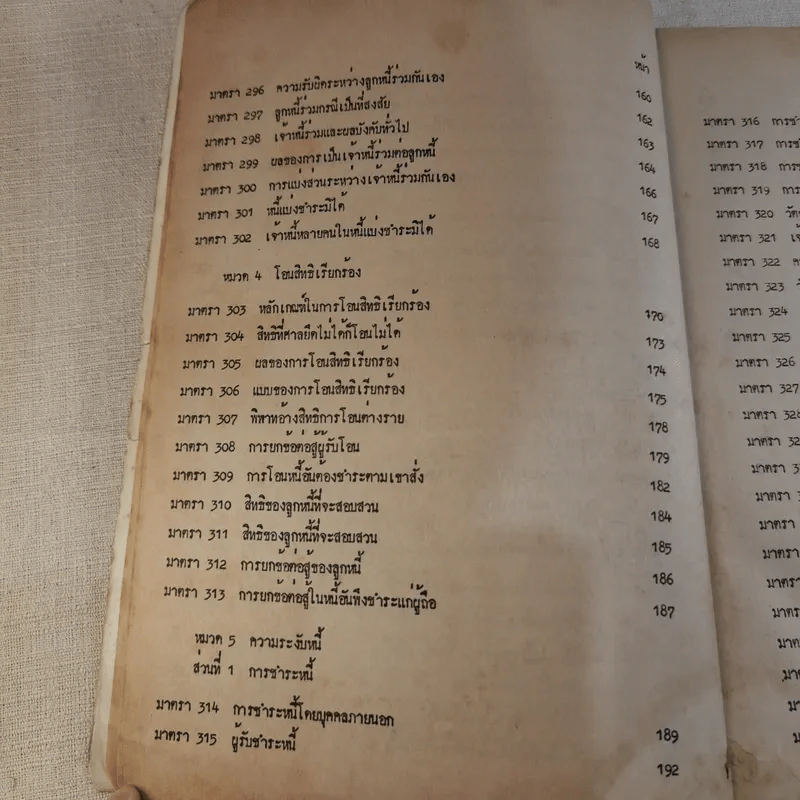 หน้า
มาตรา 296 ความรับผิดระหว่างลูกหนี้ร่วมกันเอง 160
มาตรา 297 ลูกหนี้ร่วมกรณีเป็นที่สงสัย 162
มาตรา 298 เจ้าหนี้ร่วมและผลบังคับทั่วไป 163
มาตรา 299 ผลของการเป็นเจ้าหนี้ร่วมต่อลูกหนี้ 164
มาตรา 300 การแบ่งส่วนระหว่างเจ้าหนี้ร่วมกันเอง 166
มาตรา 301 หนี้แบ่งชำระมิได้ 167
มาตรา 302 เจ้าหนี้หลายคนในหนี้แบ่งชำระมิได้ 168
หมวด 4 โอนสิทธิเรียกร้อง
มาตรา 303 หลักเกณฑ์ในการโอนสิทธิเรียกร้อง 170
มาตรา 304 สิทธิที่ศาลยึดไม่ได้ก็โอนไม่ได้ 173
มาตรา 305 ผลของการโอนสิทธิเรียกร้อง 174
มาตรา 306 แบบของการโอนสิทธิเรียกร้อง 175
มาตรา 307 พิพาทอ้างสิทธิการโอนต่างราย 178
มาตรา 308 การยกข้อต่อสู้ผู้รับโอน 179
มาตรา 309 การโอนหนี้อันต้องชำระตามเขาสั่ง 182
มาตรา 310 สิทธิของลูกหนี้ที่จะสอบสวน 184
มาตรา 311 สิทธิของลูกหนี้ที่จะสอบสวน 185
มาตรา 312 การยกข้อต่อสู้ของลูกหนี้ 186
มาตรา 313 การยกข้อต่อสู้ในหนี้อันพึงชำระแก่ผู้ถือ 187
หมวด 5 ความระงับหนี้
ส่วนที่ 1 การชำระหนี้
มาตรา 314 การชำระหนี้โดยบุคคลภายนอก 189
มาตรา 315 ผู้รับชำระหนี้ 192
มาตรา 316
มาตรา 317
มาตรา 318
มาตรา 319
มาตรา 320
มาตรา 321
มาตรา 322
มาตรา 323
มาตรา 324
มาตรา 325
มาตรา 326
มาตรา 327
มาตรา
มาตรา
มาตรา
มาตรา
มาตรา
มาตรา
มาตรา